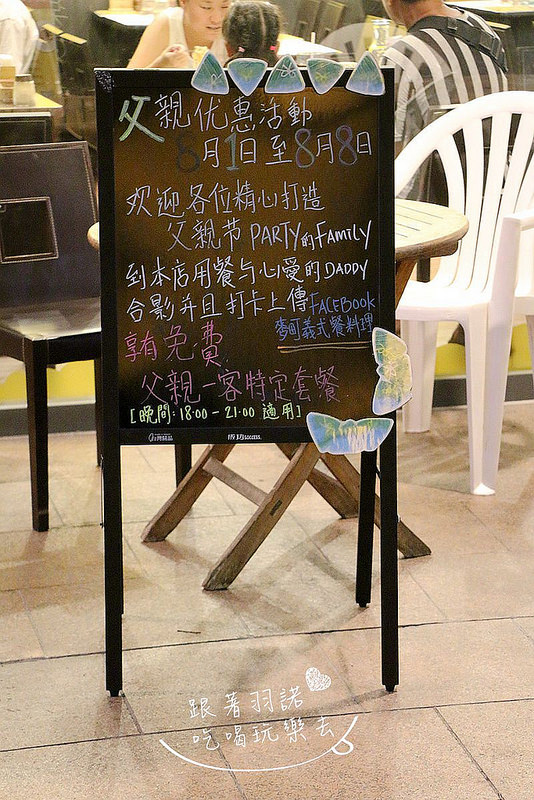 父親优惠活動
8月1日至8月8日
欢迎各位精心打造
父親节 PARTY的FAMILY
到本店用餐与心愛的DADDY
合影并且打卡上傳FACEBOOK
麥町義式餐料理
享有免費
父親一客特定套餐
[晚間:18:00-21:00 適用]
成功SUCCESS.
跟著羽諾
吃喝玩樂去